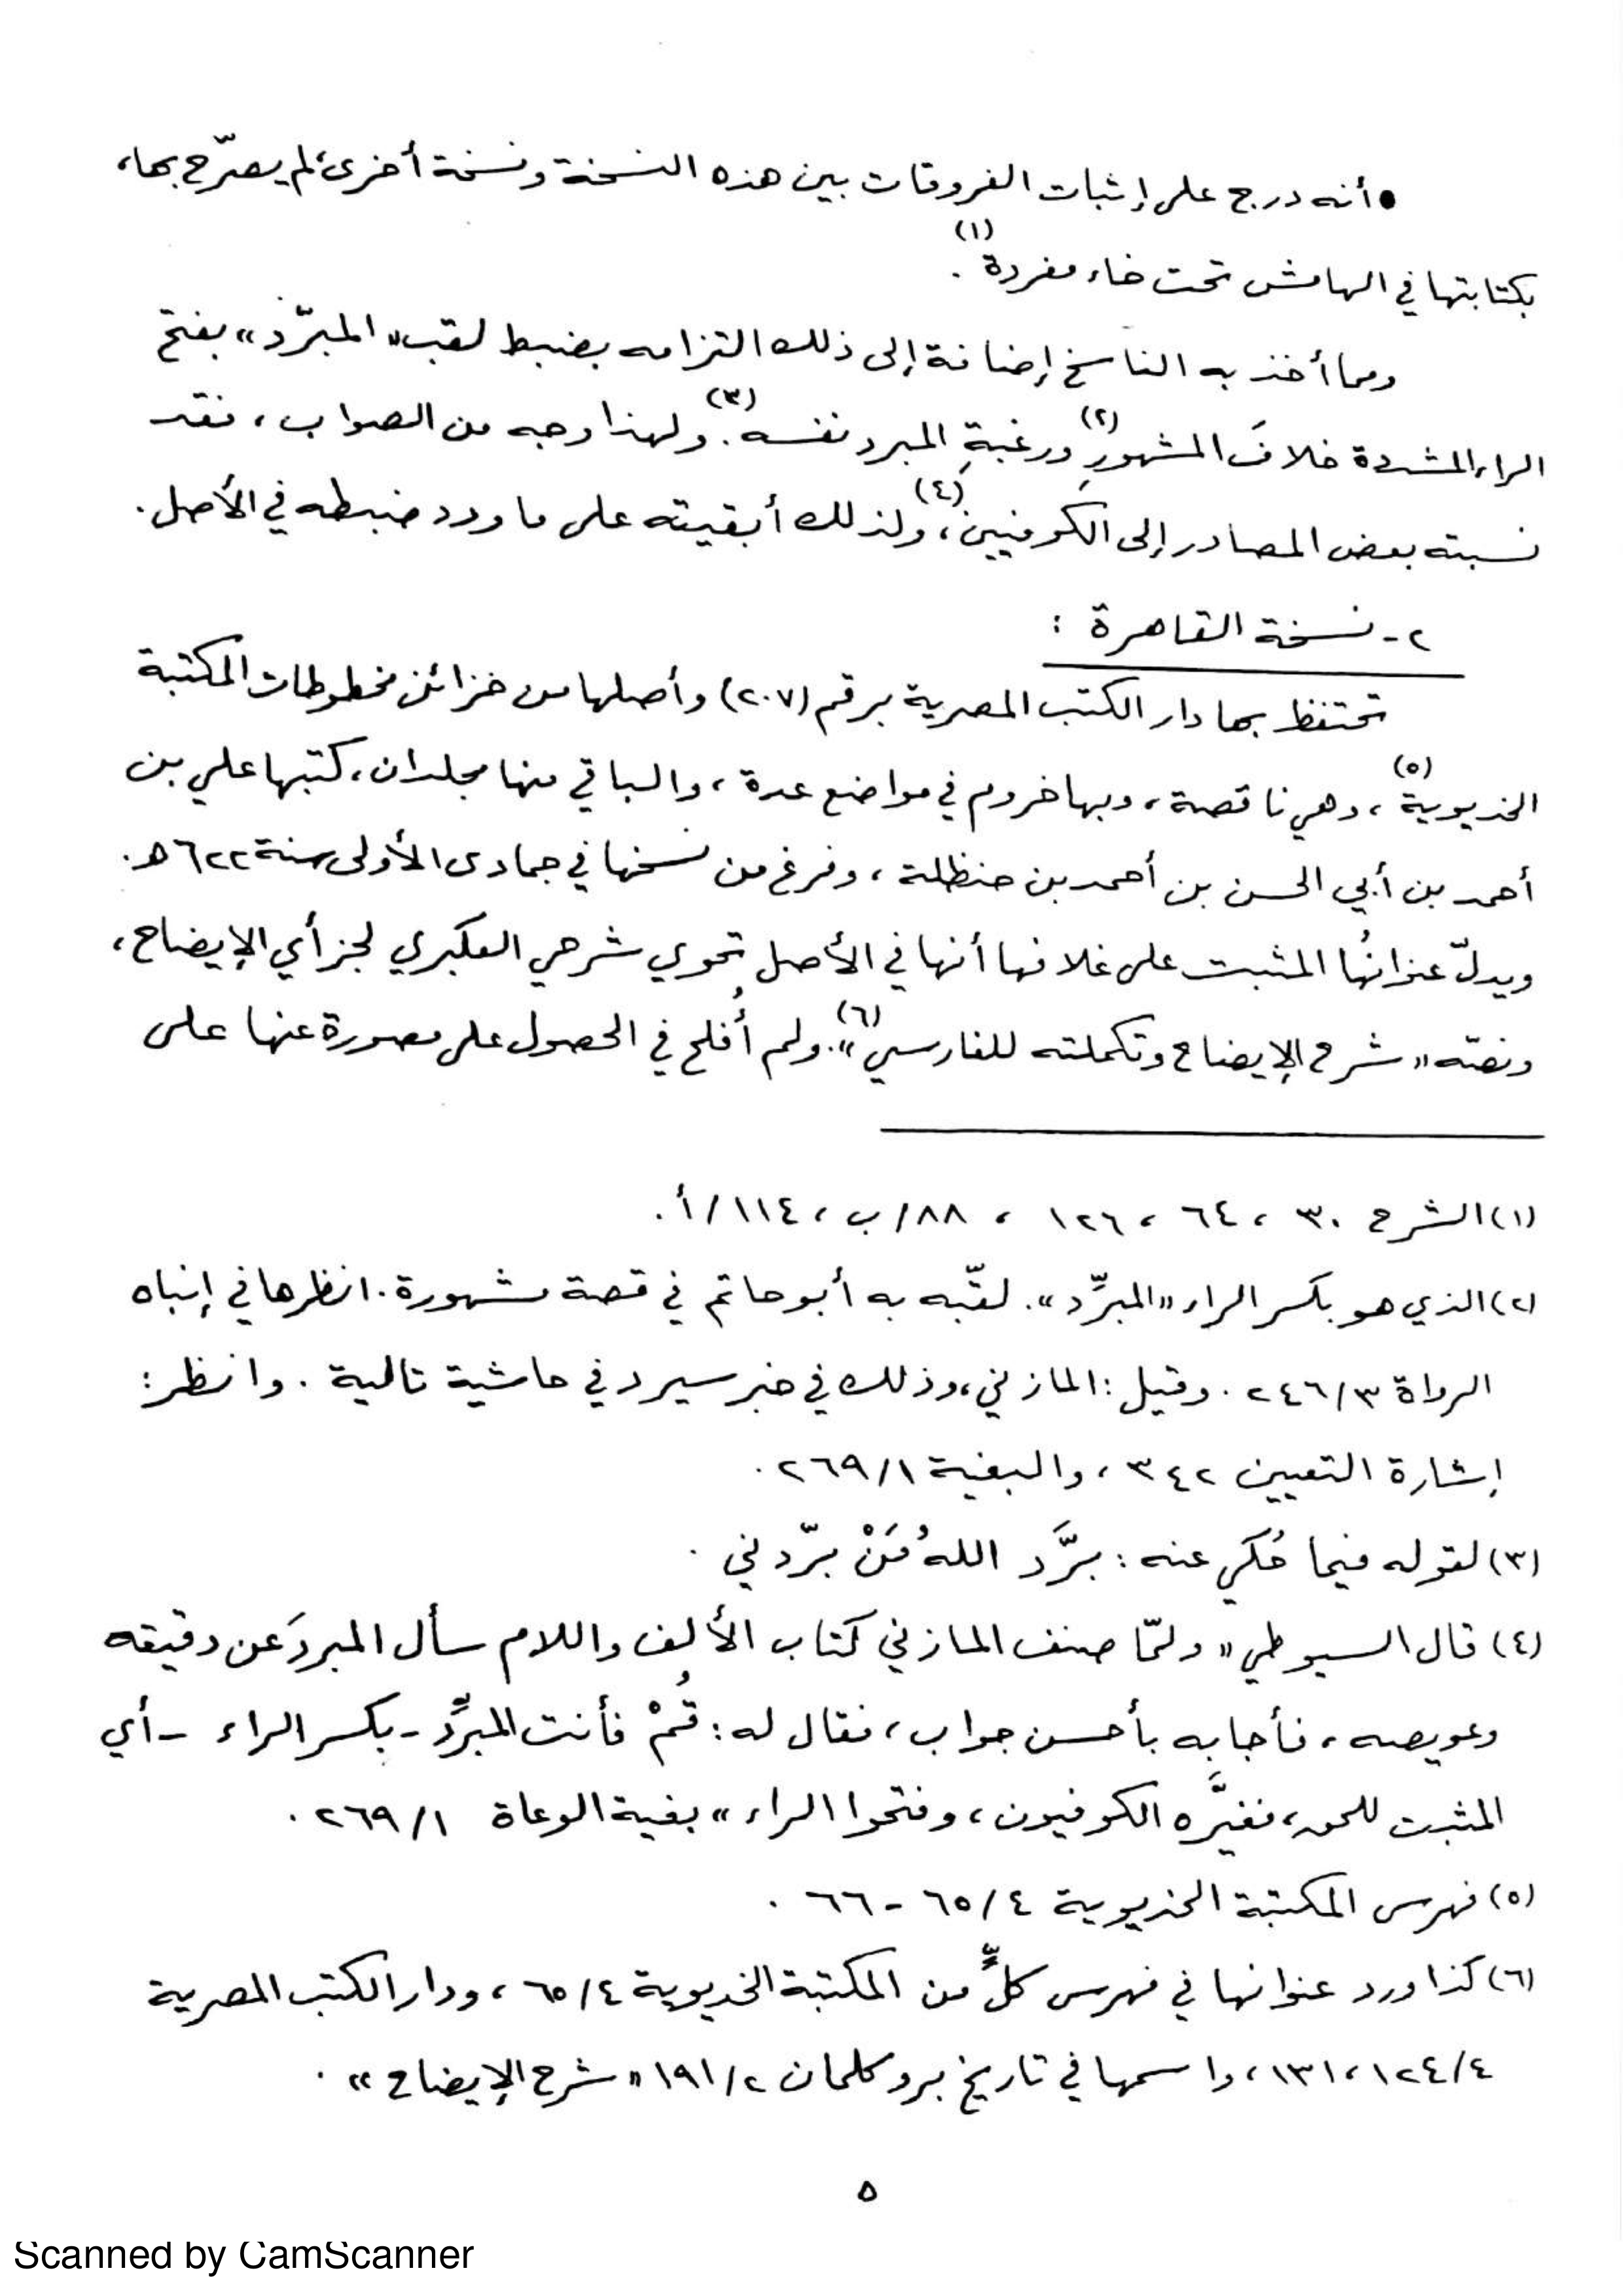 • أنه درج على إثبات الفروقات بين هذه النسخة ونسخة أخرى، لم يصرّح بها،
بكتابتها في الهامش تحت خاء مفردة (١).
ومما أخذ به الناسخ إضافة إلى ذلك التزامه بضبط لقب «المبرّد» بفتح
الراء المشددة خلافَ المشهورِ (٢) ورغبةِ المبرد نفسه (٣). ولهذا وجه من الصواب، فقد
نسبته بعض المصادر إلى الكوفيين (٤)، ولذلك أبقيته على ما ورد ضبطه في الأصل.
٢- نسخة القاهرة :
تحتفظ بها دار الكتب المصرية برقم (٢٠٧) وأصلها من خزائن مخطوطات المكتبة
الخديوية (٥)، وهي ناقصة، وبها خروم في مواضع عدة، والباقي منها مجلدان، كتبها علي بن
أحمد بن أبي الحسن بن أحمد بن حنظلة، وفرغ من نسخها في جمادى الأولى سنة ٦٢٢هـ.
ويدلّ عنوانُها المثبت على غلافها أنها في الأصل تحوي شرحي العكبري لجزأي الإيضاح،
ونصّه «شرح الإيضاع وتكملته للفارسي (٦)». ولم أُفلح في الحصول على مصورة عنها على
(١) الشرح ٣٠، ٦٤، ١٢٦، ٨٨/ب، ١١٤/أ.
(٢) الذي هو بكسر الراء «المبرِّد». لقّبه به أبو حاتم في قصة مشهورة. انظرها في إنباه
الرواة ٢٤٦/٣. وقيل: المازني، وذلك في خبر سيرد في حاشية تالية. وانظر:
إشارة التعيين ٣٤٢، والبغية ٢٦٩/١.
(٣) لقوله فيما حُكي عنه: برَّد اللهُ مَنْ برّدني.
(٤) قال السيوطي «ولمّا صنف المازني كتاب الألف واللام سأل المبردَ عن دقيقه
وعويصه، فأجابه بأحسن جواب، فقال له: قُمْ فأنت المبرِّد - بكسر الراء - أي
المثبت للحق، فغيَّره الكوفيون، وفتحوا الراء» بغية الوعاة ٢٦٩/١.
(٥) فهرس المكتبة الخديوية ٦٥/٤ - ٦٦.
(٦) كذا ورد عنوانها في فهرس كلٍّ من المكتبة الخديوية ٦٥/٤، ودار الكتب المصرية
١٢٤/٤، ١٣١، واسمها في تاريخ بروكلمان ١٩١/٢ «شرح الإيضاح».
٥
Scanned by CamScanner